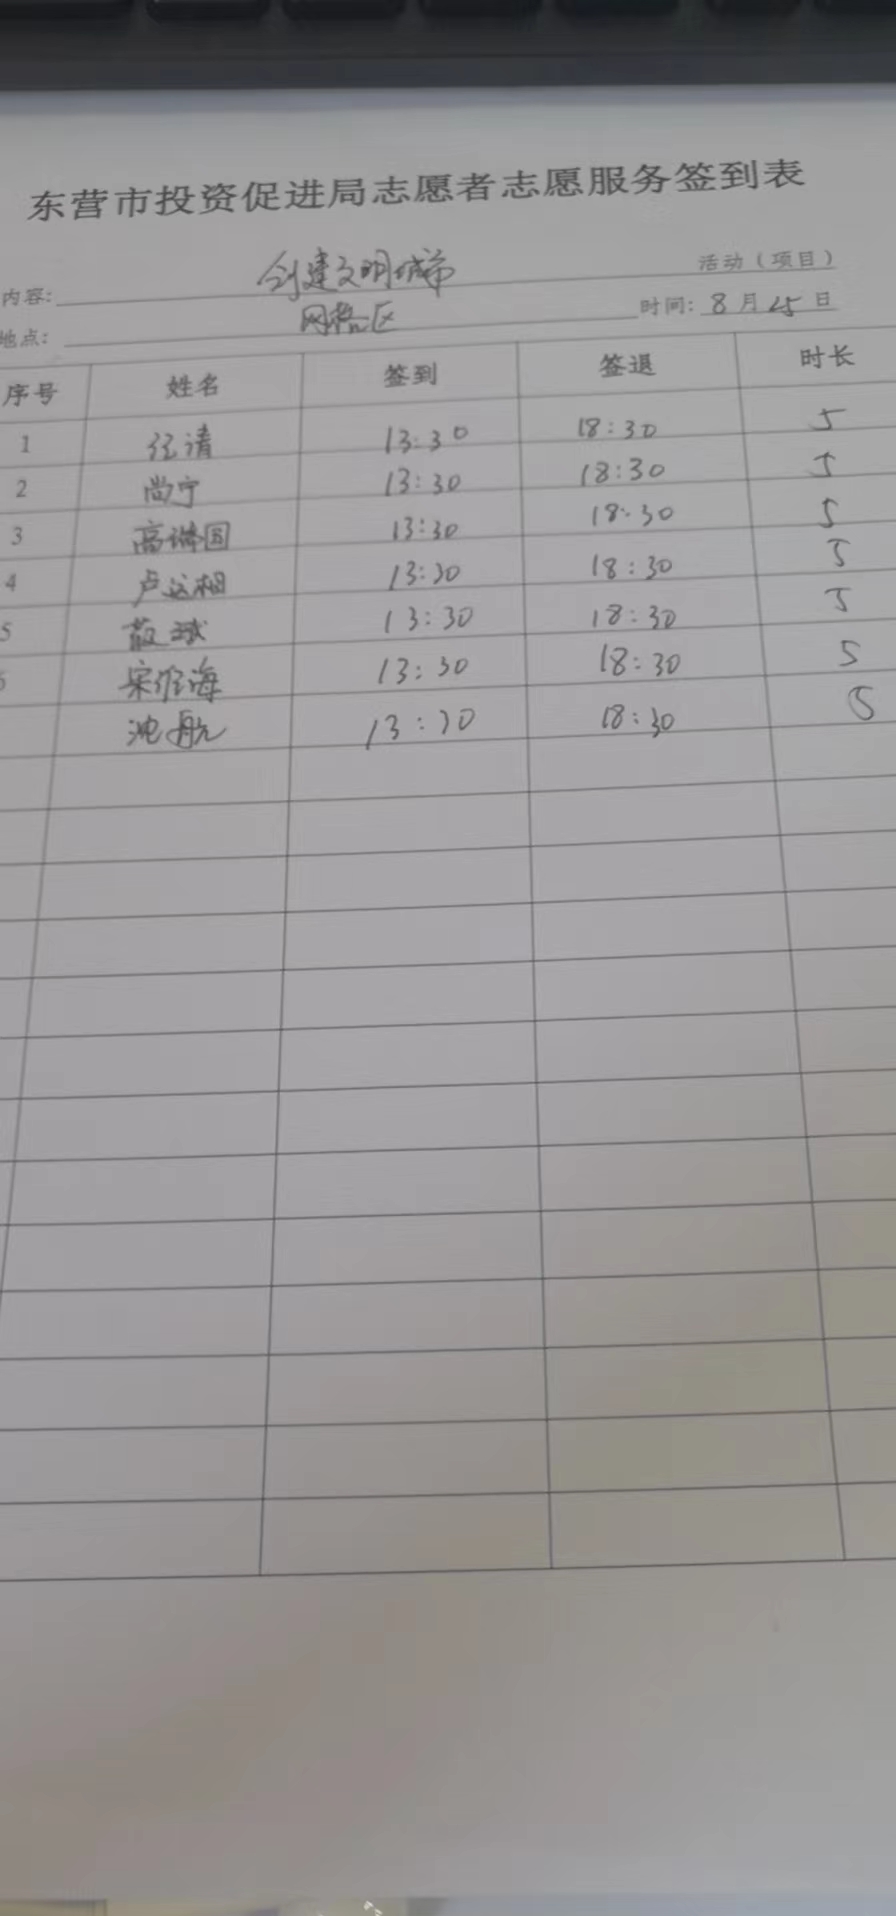 东营市投资促进局志愿者志愿服务签到表
内容: 创建文明城市 活动（项目）
地点: 网格区 时间: 8月25日
序号 姓名 签到 签退 时长
1 任清 13:30 18:30 5
2 尚宁 13:30 18:30 5
3 高琳国 13:30 18:30 5
4 卢远相 13:30 18:30 5
5 13:30 18:30 5
6 宋维海 13:30 18:30 5
沈航 13:30 18:30 5